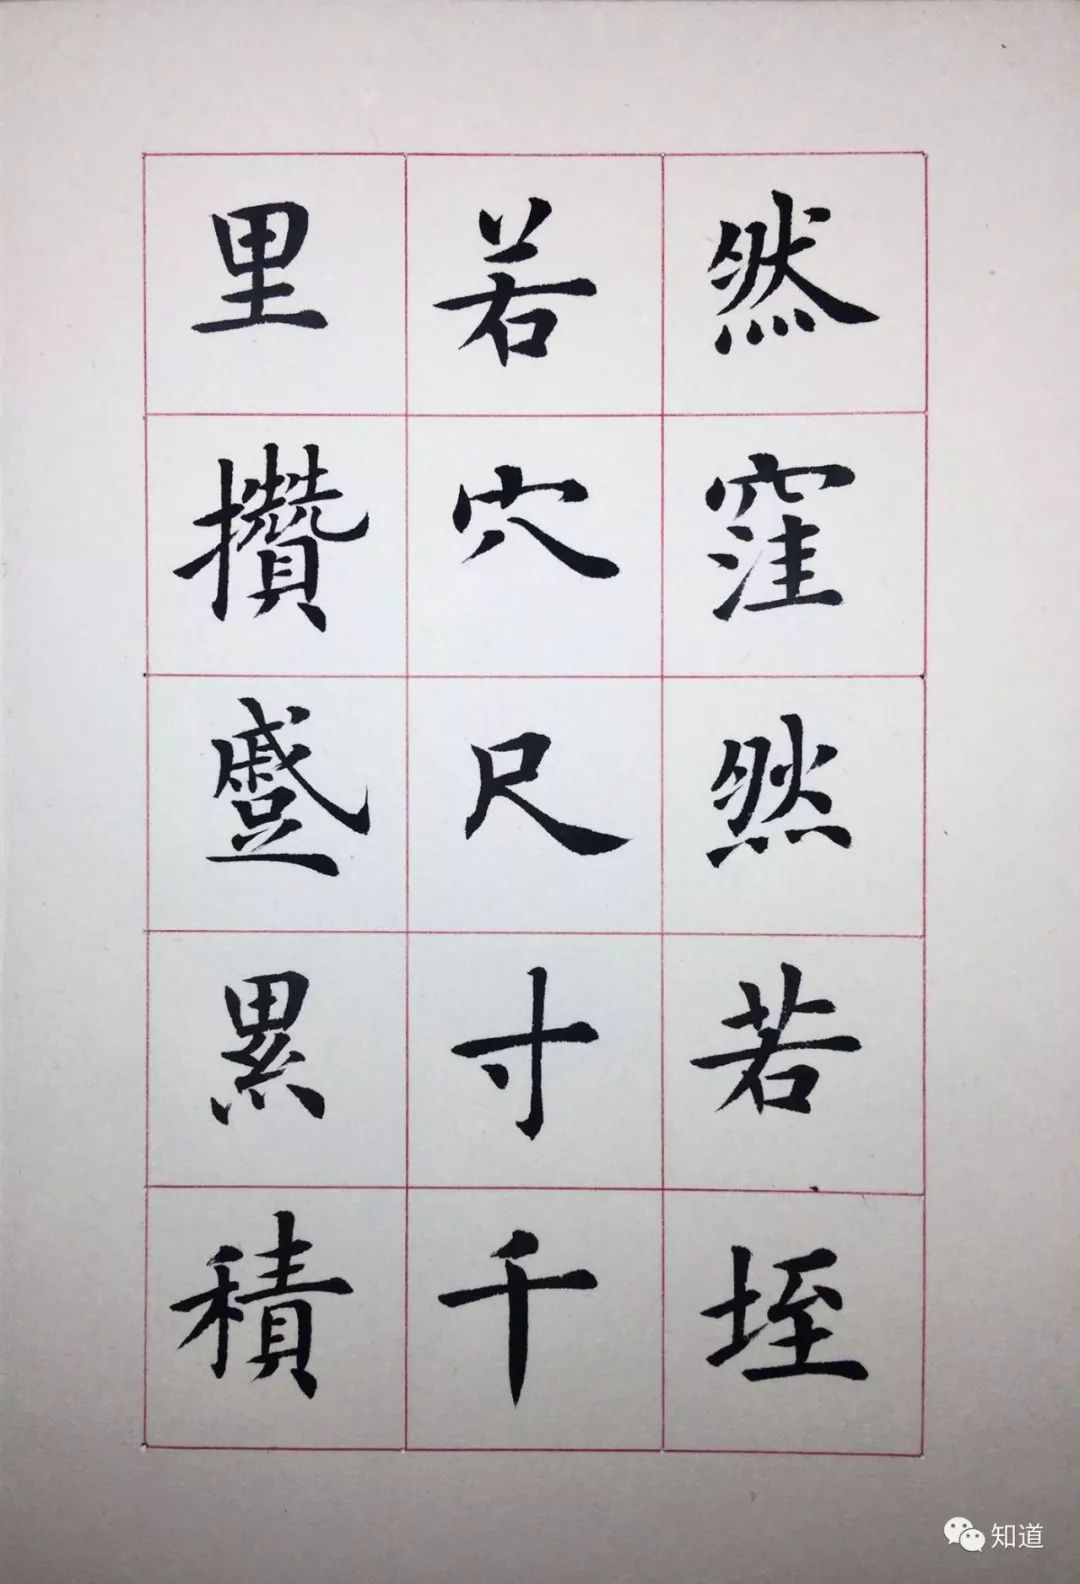 然窪然若垤
若穴尺寸千
里攢蹙累積
知道